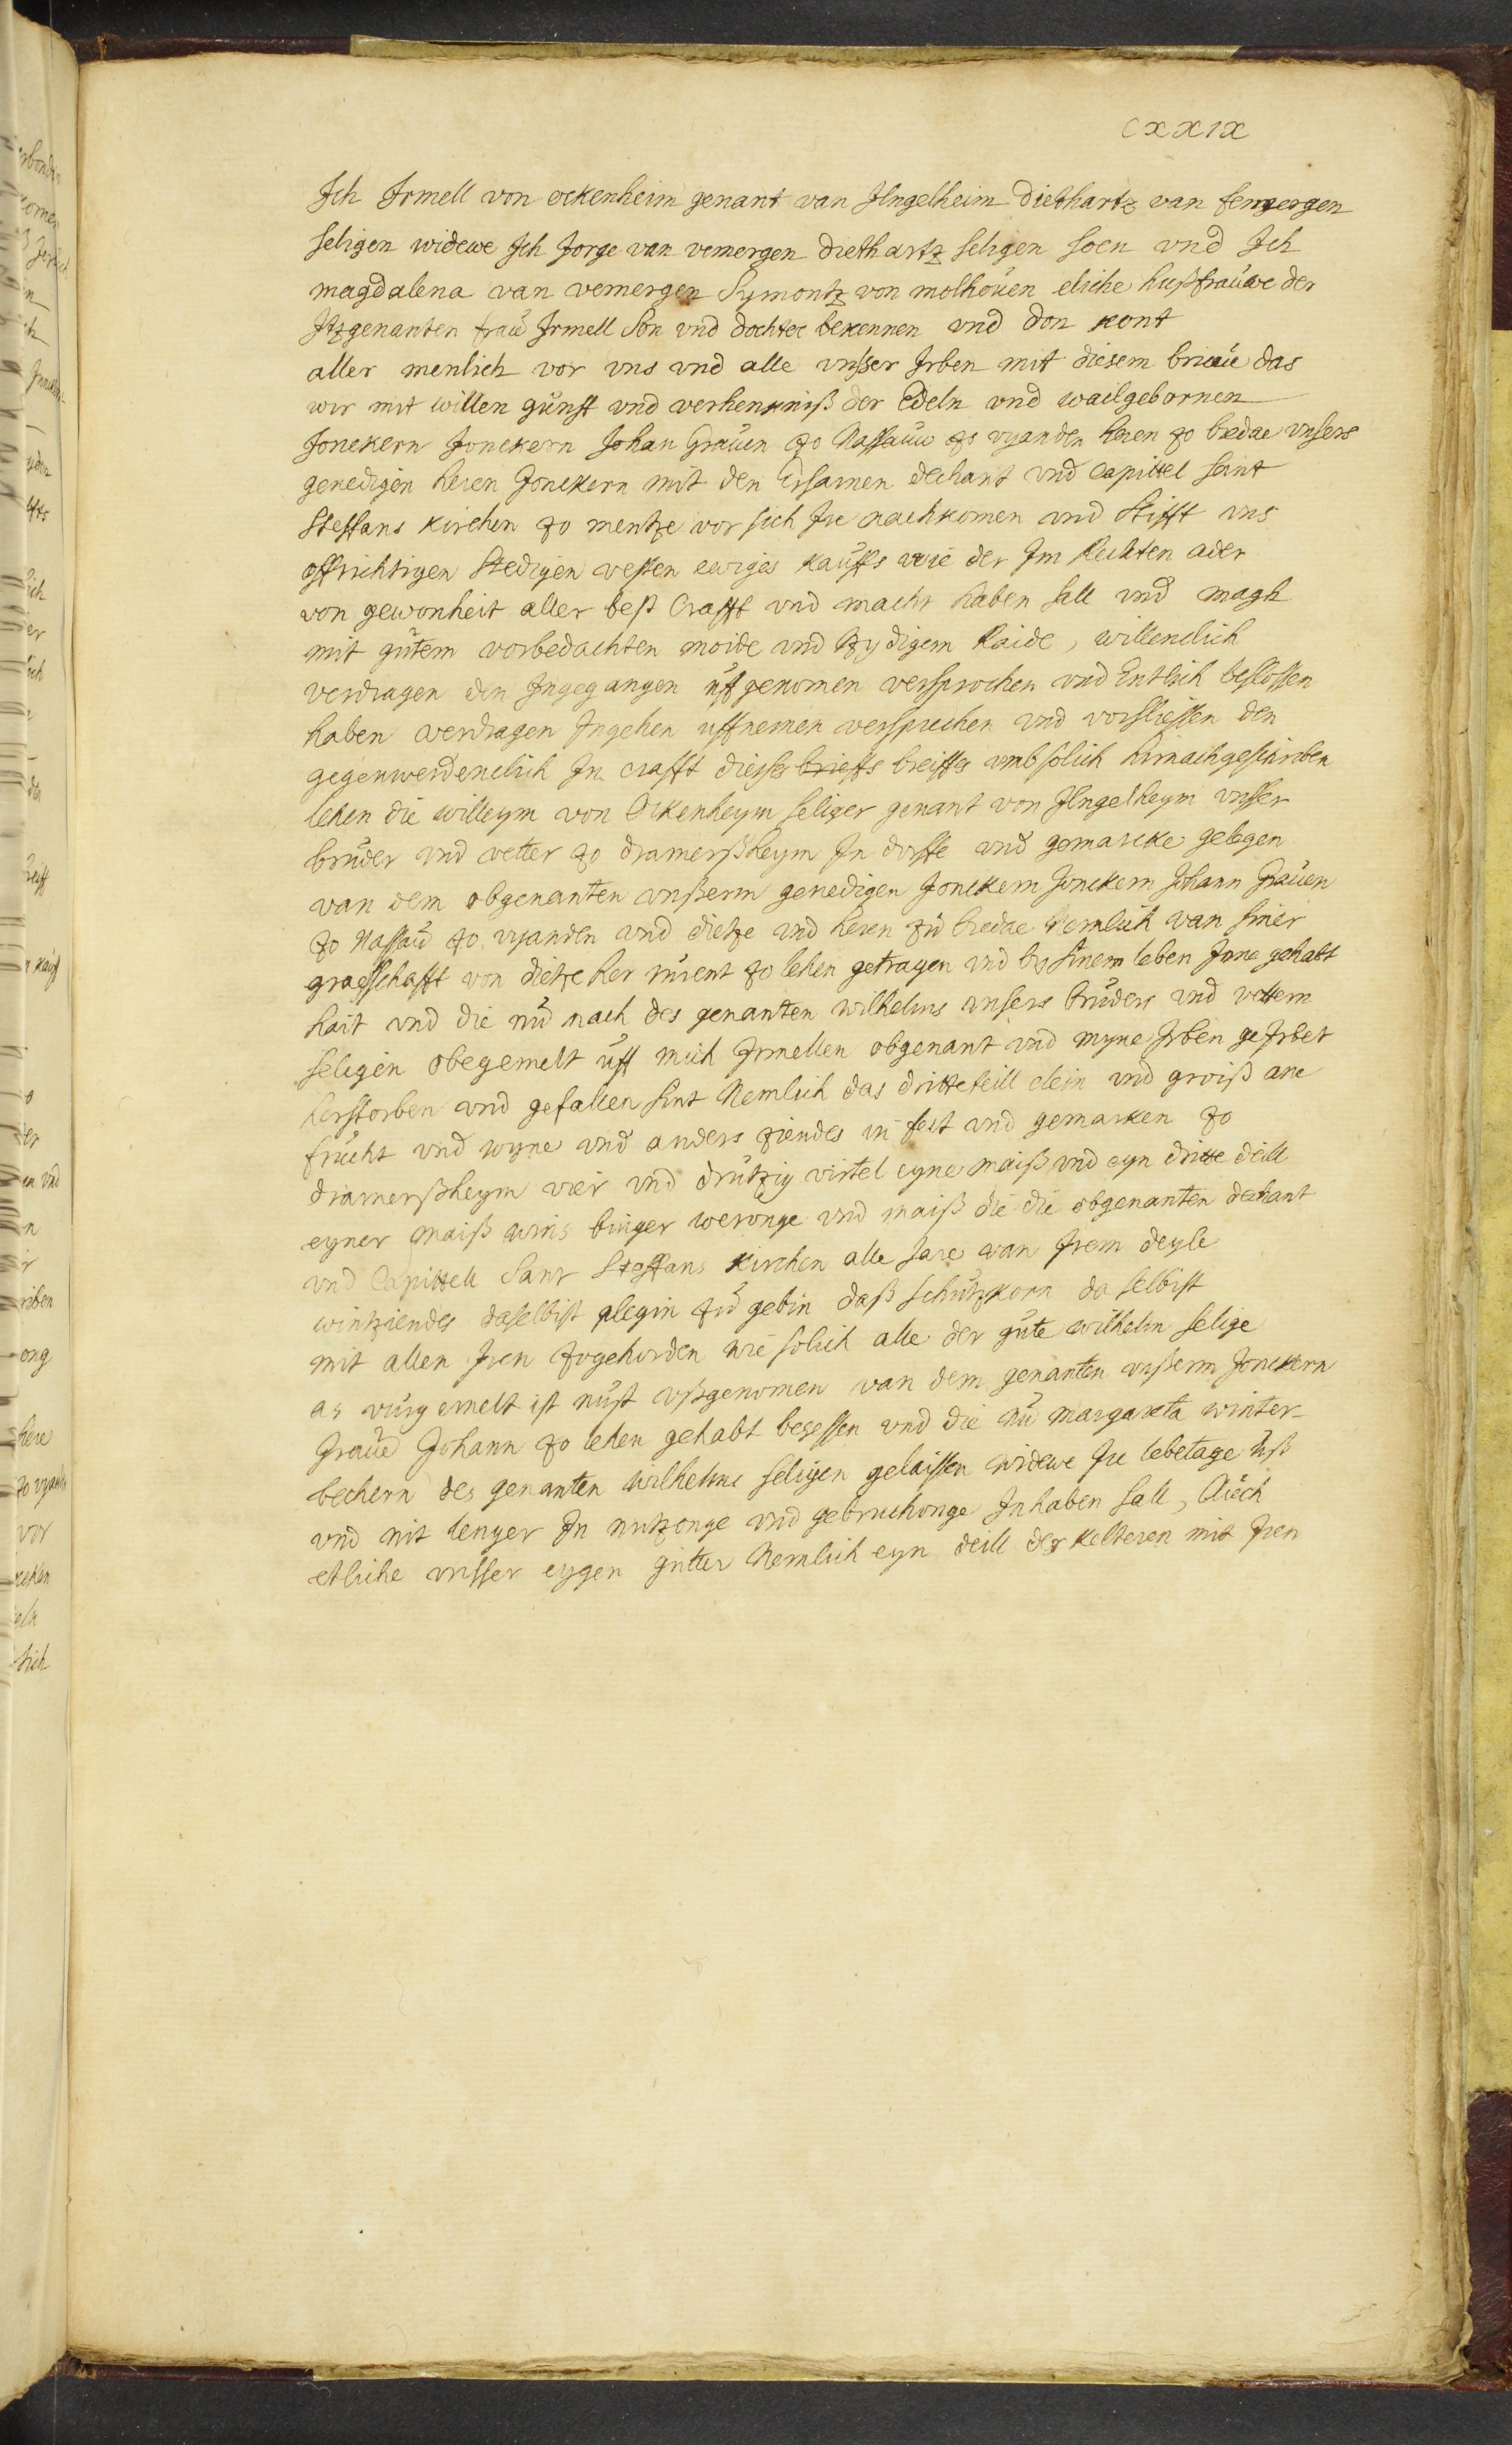 CXXIX
Ich Irmell von ockenheim genant van Ilngelheim Diethartz van femergen
seligen widewe Ich Jorge van vemergen diethartz seligen soen vnd Ich
magdalena van vemergen Symontz von molhouen eliche hußfrauwe der
Itzgenanten frau Irmell Son vnd dochter bekennen vnd don kont
aller menlich vor vns vnd alle vnsser Irben mit diesem brieue das
wir mit willen gunst vnd verhenkniß der Edeln vnd wailgebornen
Jonckern Jonckern Johan Grauen zo Nassauw zo vyanden heren zo bredae vnsers
genedigen heren Jonckern mit den Ersamen dechant vnd Capittel sant
Steffans kirchen zo mentze vor sich Ire nachkomen vnd Stifft vns
offrichtigen Stedigen vesten ewiges kauffs wie der Im Rechten ader
von gewonheit aller best Crafft vnd macht haben sall vnd magh
mit gutem vorbedachten moide vnd tzydigem Raide, willenclich
verdragen den Ingegangen uffgenomen versprochen vnd Entlich beslossen
haben verdragen Ingehen uffnemen versprechen vnd vorsliessen den
gegenwerdenclich In crafft dieses brieffs breiffes vmb solich hirnachgeschreben
lehen die willeym von Ockenheym seliger genant von Ilngelheym vnsser
bruder vnd vetter zo dramerßheym In dorffe vnd gemarcke gelegen
van dem obgenanten vnßerm genedigen Jonckern Jonckern Johann Grauen
zo Nassau zo vyanden vnd dietze vnd heren zu bredae Nemlich van siner
graeffschafft von dietze her rurent zo lehen getragen vnd by sinem leben Inne gehabt
hait vnd die nu nach des genanten wilhelms vnsers bruders vnd vettern
seligen obegemelt uff mich Irmellen obgenant vnd myne Irben geIrbet
herstorben vnd gefallen sint Nemlich das dritteteill clein vnd groiß ane
frucht vnd wyne vnd anders ziendes in felt vnd gemarken zo
dramerßheym vier vnd drutzig virtel eyne maiß vnd eyn dritte deill
eyner maiß wins binger weronge vnd maiß die die obgenanten dechant
vnd Capittell Sant Steffans kirchen alle Jare van Irem deyle
wintziendes daselbist plegin zu gebin daß schutzkorn da selbist
mit allen Iren zogehorden wie solich alle der gute wilhelm selige
as vurg emelt ist nust vßgenomen van dem genanten vnßerm Jonckern
Graue Johann zo lehen gehabt besessen vnd die nu margareta winter-
bechern des genanten wilhelms seligen gelaissen widewe Ire lebetage uß
vnd nit lenger In nutzonge vnd gebruchonge Inhaben sall, Auch
etliche vnsser eygen gutter Nemlich eyn deill der kelteren mit Iren